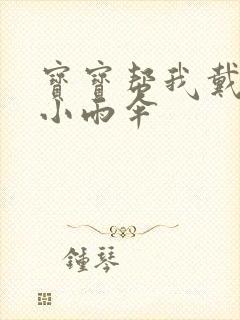 寶寶幫我戴
小雨伞
鍾琴